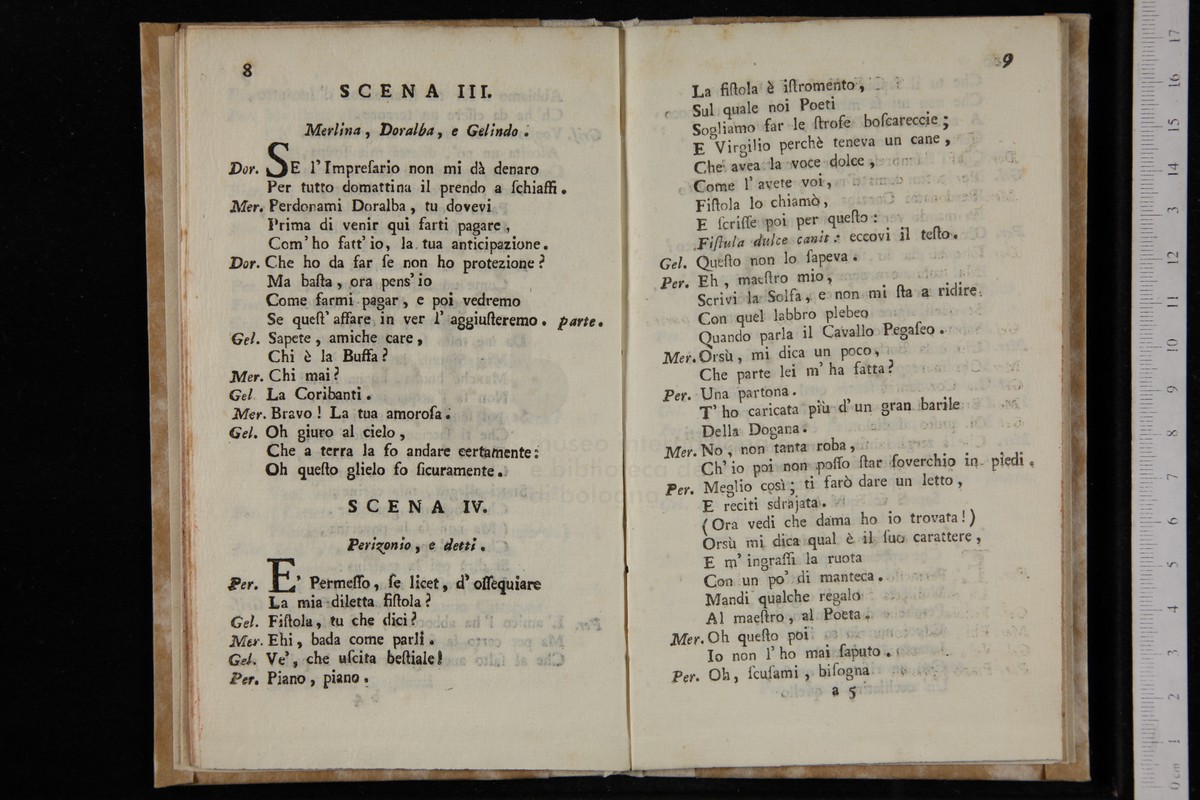 8
SCENA III.
Merlina, Doralba, e Gelindo.
Dor. SE l'Impreſario non mi dà denaro
Per tutto domattina il prendo a ſchiaffi.
Mer. Perdonami Doralba, tu dovevi
Prima di venir qui farti pagare,
Com'ho fatt'io, la tua anticipazione.
Dor. Che ho da far ſe non ho protezione?
Ma baſta, ora pens'io
Come farmi pagar, e poi vedremo
Se queſt'affare in ver l'aggiuſteremo. parte.
Gel. Sapete, amiche care,
Chi è la Buffa?
Mer. Chi mai?
Gel La Coribanti.
Mer. Bravo! La tua amoroſa.
Gel. Oh giuro al cielo,
Che a terra la fo andare certamente:
Oh queſto glielo fo ſicuramente.
SCENA IV.
Perizonio, e detti.
Per. E' Permeſſo, ſe licet, d'oſſequiare
La mia diletta fiſtola?
Gel. Fiſtola, tu che dici?
Mer. Ehi, bada come parli.
Gel. Ve', che uſcita beſtiale!
Per. Piano, piano.
9
La fiſtola è iſtromento,
Sul quale noi Poeti
Sogliamo far le ſtrofe boſcareccie;
E Virgilio perchè teneva un cane,
Che avea la voce dolce,
Come l'avete voi,
Fiſtola lo chiamò,
E ſcriſſe poi per queſto:
Fiſtula dulce canit: eccovi il teſto.
Gel. Queſto non lo ſapeva.
Per. Eh, maeſtro mio,
Scrivi la Solfa, e non mi ſta a ridire
Con quel labbro plebeo
Quando parla il Cavallo Pegaſeo.
Mer. Orsù, mi dica un poco,
Che parte lei m'ha fatta?
Per. Una partona.
T'ho caricata più d'un gran barile
Della Dogana.
Mer. No, non tanta roba,
Ch'io poi non poſſo ſtar ſoverchio in piedi.
Per. Meglio così; ti farò dare un letto,
E reciti sdrajata.
(Ora vedi che dama ho io trovata!)
Orsù mi dica qual è il ſuo carattere,
E m'ingraſſi la ruota
Con un po' di manteca.
Mandi qualche regalo
Al maeſtro, al Poeta.
Mer. Oh queſto poi
Io non l'ho mai ſaputo.
Per. Oh, ſcuſami, biſogna
a 5